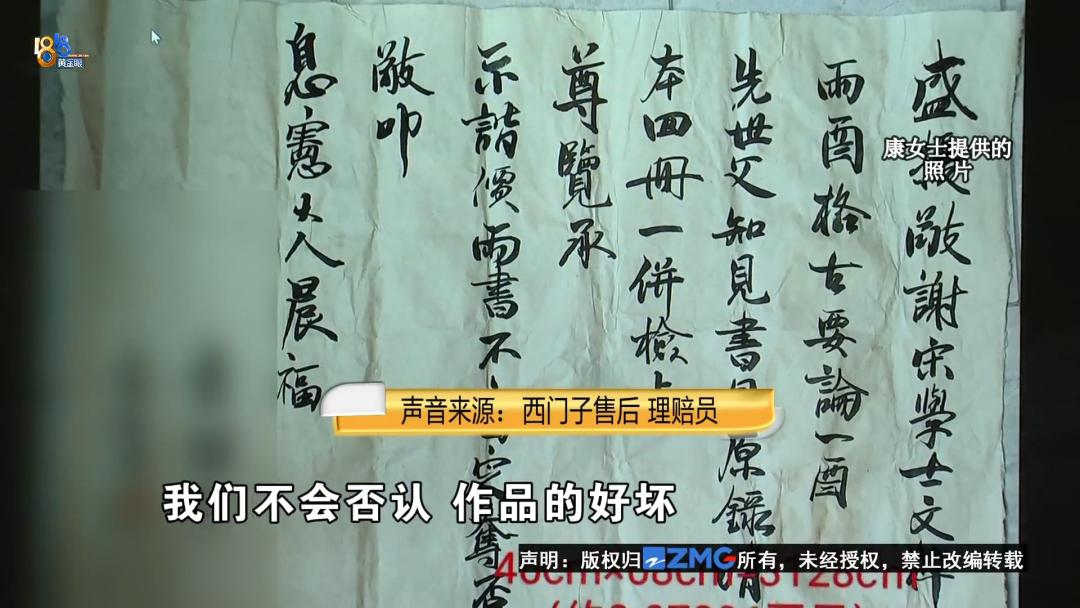 1818
黄金眼
康女士提供的
照片
盛擬敬謝宋學士文粹
兩酉格古要論一酉
先世父知見書目原錄
本四冊一併檢
尊覽承
示諧價兩書不
敬叩
息憲大人晨福
声音来源：西门子售后 理赔员
我们不会否认 作品的好坏
声明：版权归ZMG所有，未经授权，禁止改编转载